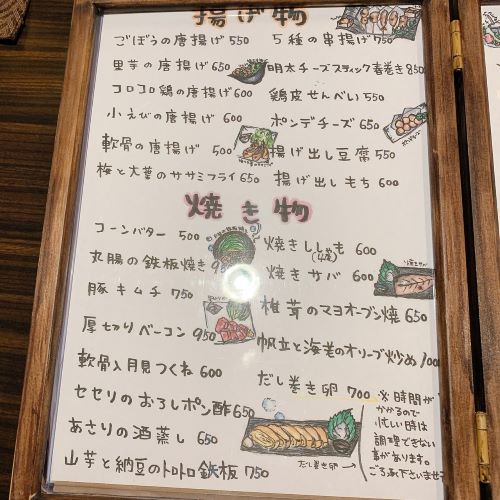 揚げ物
ごぼうの唐揚げ 550
里芋の唐揚げ 650
コロコロ鶏の唐揚げ 600
小えびの唐揚げ 600
軟骨の唐揚げ 500
梅と大葉のササミフライ 650
5種の串揚げ 750
明太チーズスティック春巻き 850
鶏皮せんべい 550
ポンデチーズ 650
揚げ出し豆腐 550
揚げ出しもち 600
焼き物
コーンバター 500
丸腸の鉄板焼き
豚キムチ 750
厚切りベーコン 950
軟骨入月見つくね 600
セセリのおろしポン酢 650
あさりの酒蒸し 650
山芋と納豆のトロトロ鉄板 750
焼きししゃも 600
焼きサバ 600
椎茸のマヨオーブン焼 650
帆立と海老のオリーブ炒め
だし巻き卵 700
※時間が
かかるので
忙しい時は
調理できない
事があります。
ご了承下さいませ
だし巻き卵